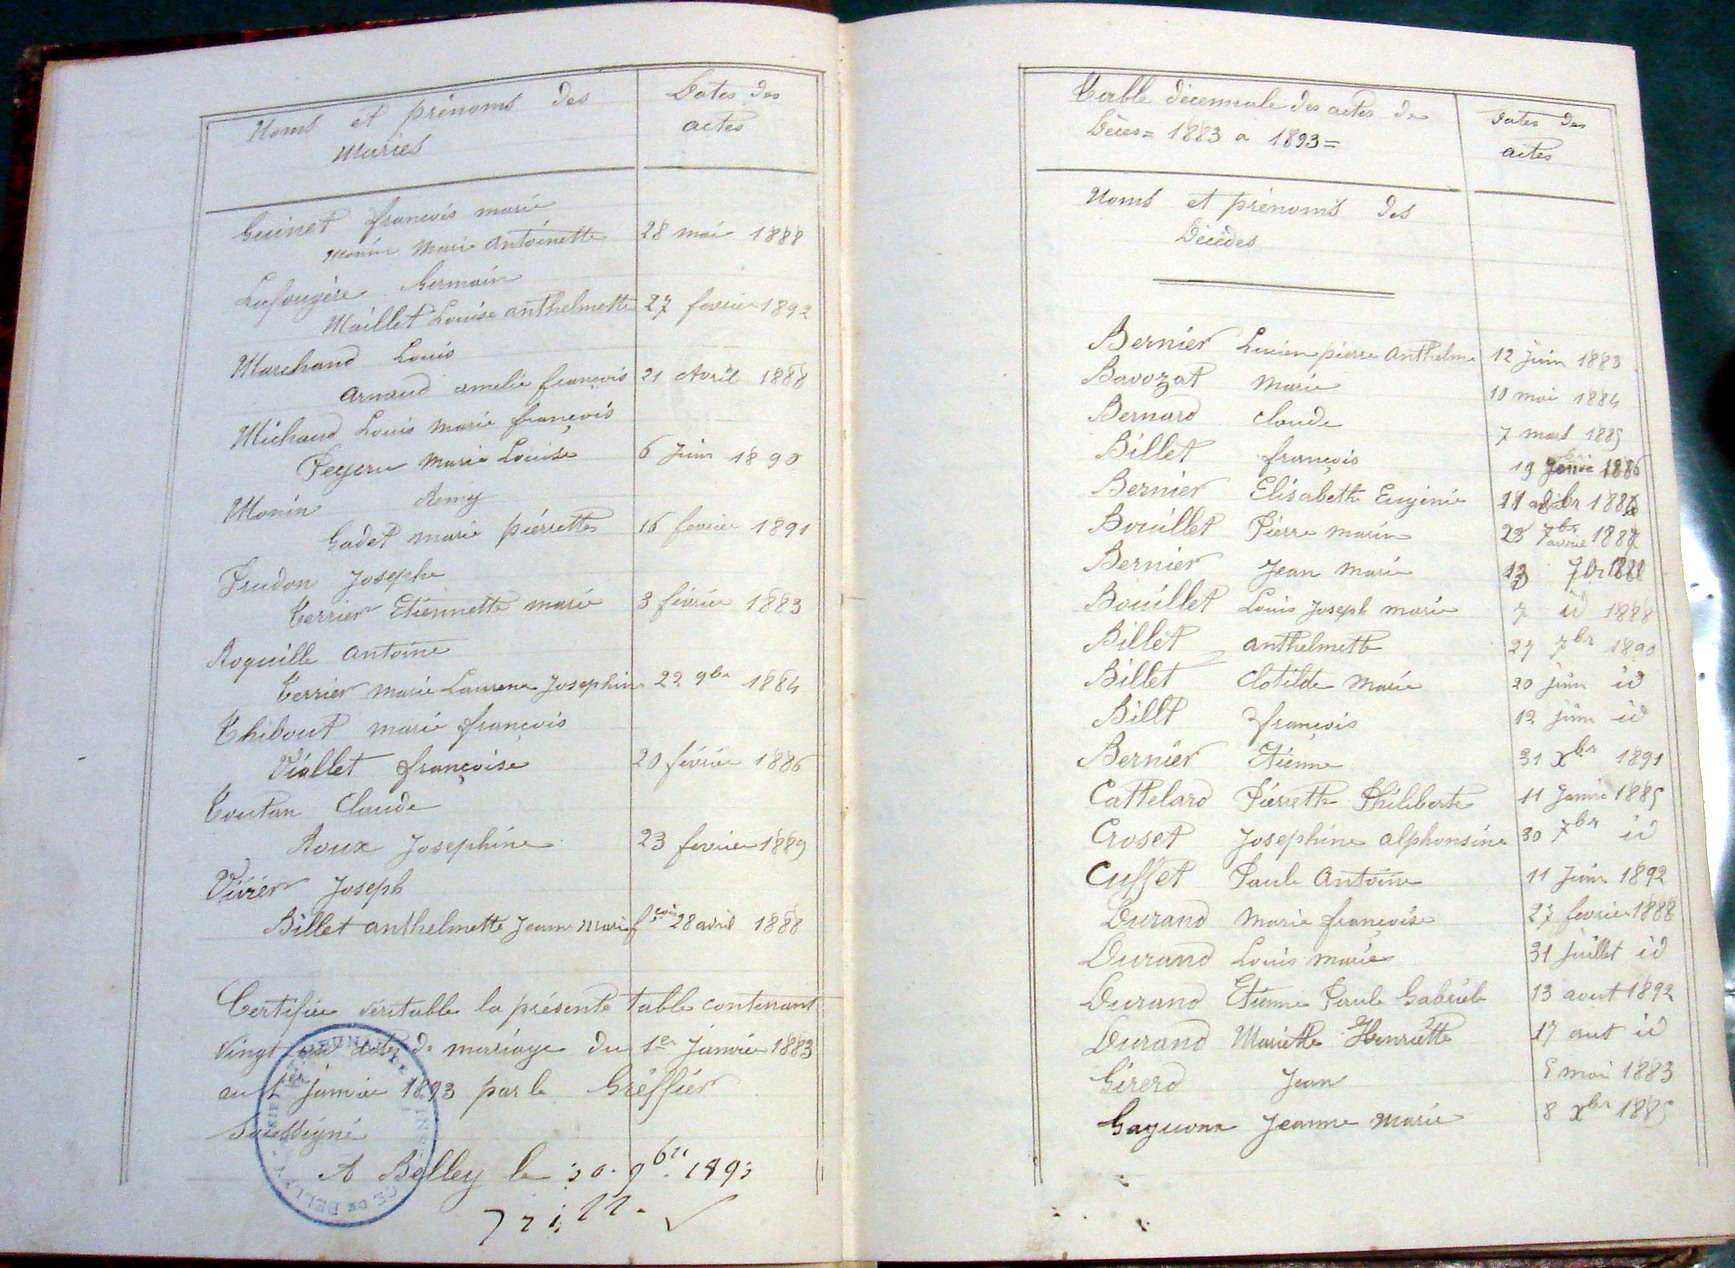 Noms et prénoms des
Mariés
Dates des
actes
Guinet françois marie
Monin Marie antoinette 28 mai 1888
Lafougère Germain
Maillet Louise anthelmette 27 fevrier 1892
Marchand Louis
Arnaud amelie françois 21 Avril 1888
Michaud Louis marie françois
Marie Louise 6 Juin 1890
Monin Remy
Gadet marie pierrette 16 fevrier 1891
Prudon Josephe
Terrier Etiennette marie 3 février 1883
Roquille antoine
Terrier marie Laurence Josephine 22 9bre 1884
Thibout marie françois
Viollet françoise 20 février 1886
Toutan Claude
Roux Josephine 23 fevrier 1889
Vivier Joseph
Billet anthelmette Jeanne Marie fçoise 28 avril 1888
Certifiée véritable la présente table contenant
vingt actes de mariage du 1er Janvier 1883
au 1er janvier 1893 par le Greffier
Soussigné
A Belley le 30 9bre 1893
Table décennale des actes de
Décès = 1883 a 1893 =
Dates des
actes
Noms et prénoms des
Décédés
Bernier Lucien pierre Anthelme 12 Juin 1883
Bavozat Marie 10 mai 1884
Bernard Claude 7 mars 1885
Billet françois 19 1886
Bernier Elisabeth Eugénie
Bouillet Pierre marin 23
Bernier Jean Marie
Bouillet Louis Joseph marie 7 id 1888
Billet anthelmette 27 7br 1890
Billet Clotilde Marie 20 juin id
Billt françois 12 juin id
Bernier Etienne 31 Xbr 1891
Cattelard Pierrette Philiberte 11 Janvier 1885
Croset Josephine alphonsine 30 7br id
Cuffet Paule Antoine 11 Juin 1892
Durand Marie françoise 27 fevrier 1888
Durand Louis marie 31 Juillet id
Durand Etienne Paule Gabriele 13 aout 1892
Durand Mariette Henriette 17 aut id
Girerd Jean 5 mai 1883
Jeanne Marie 8 Xbr 1885